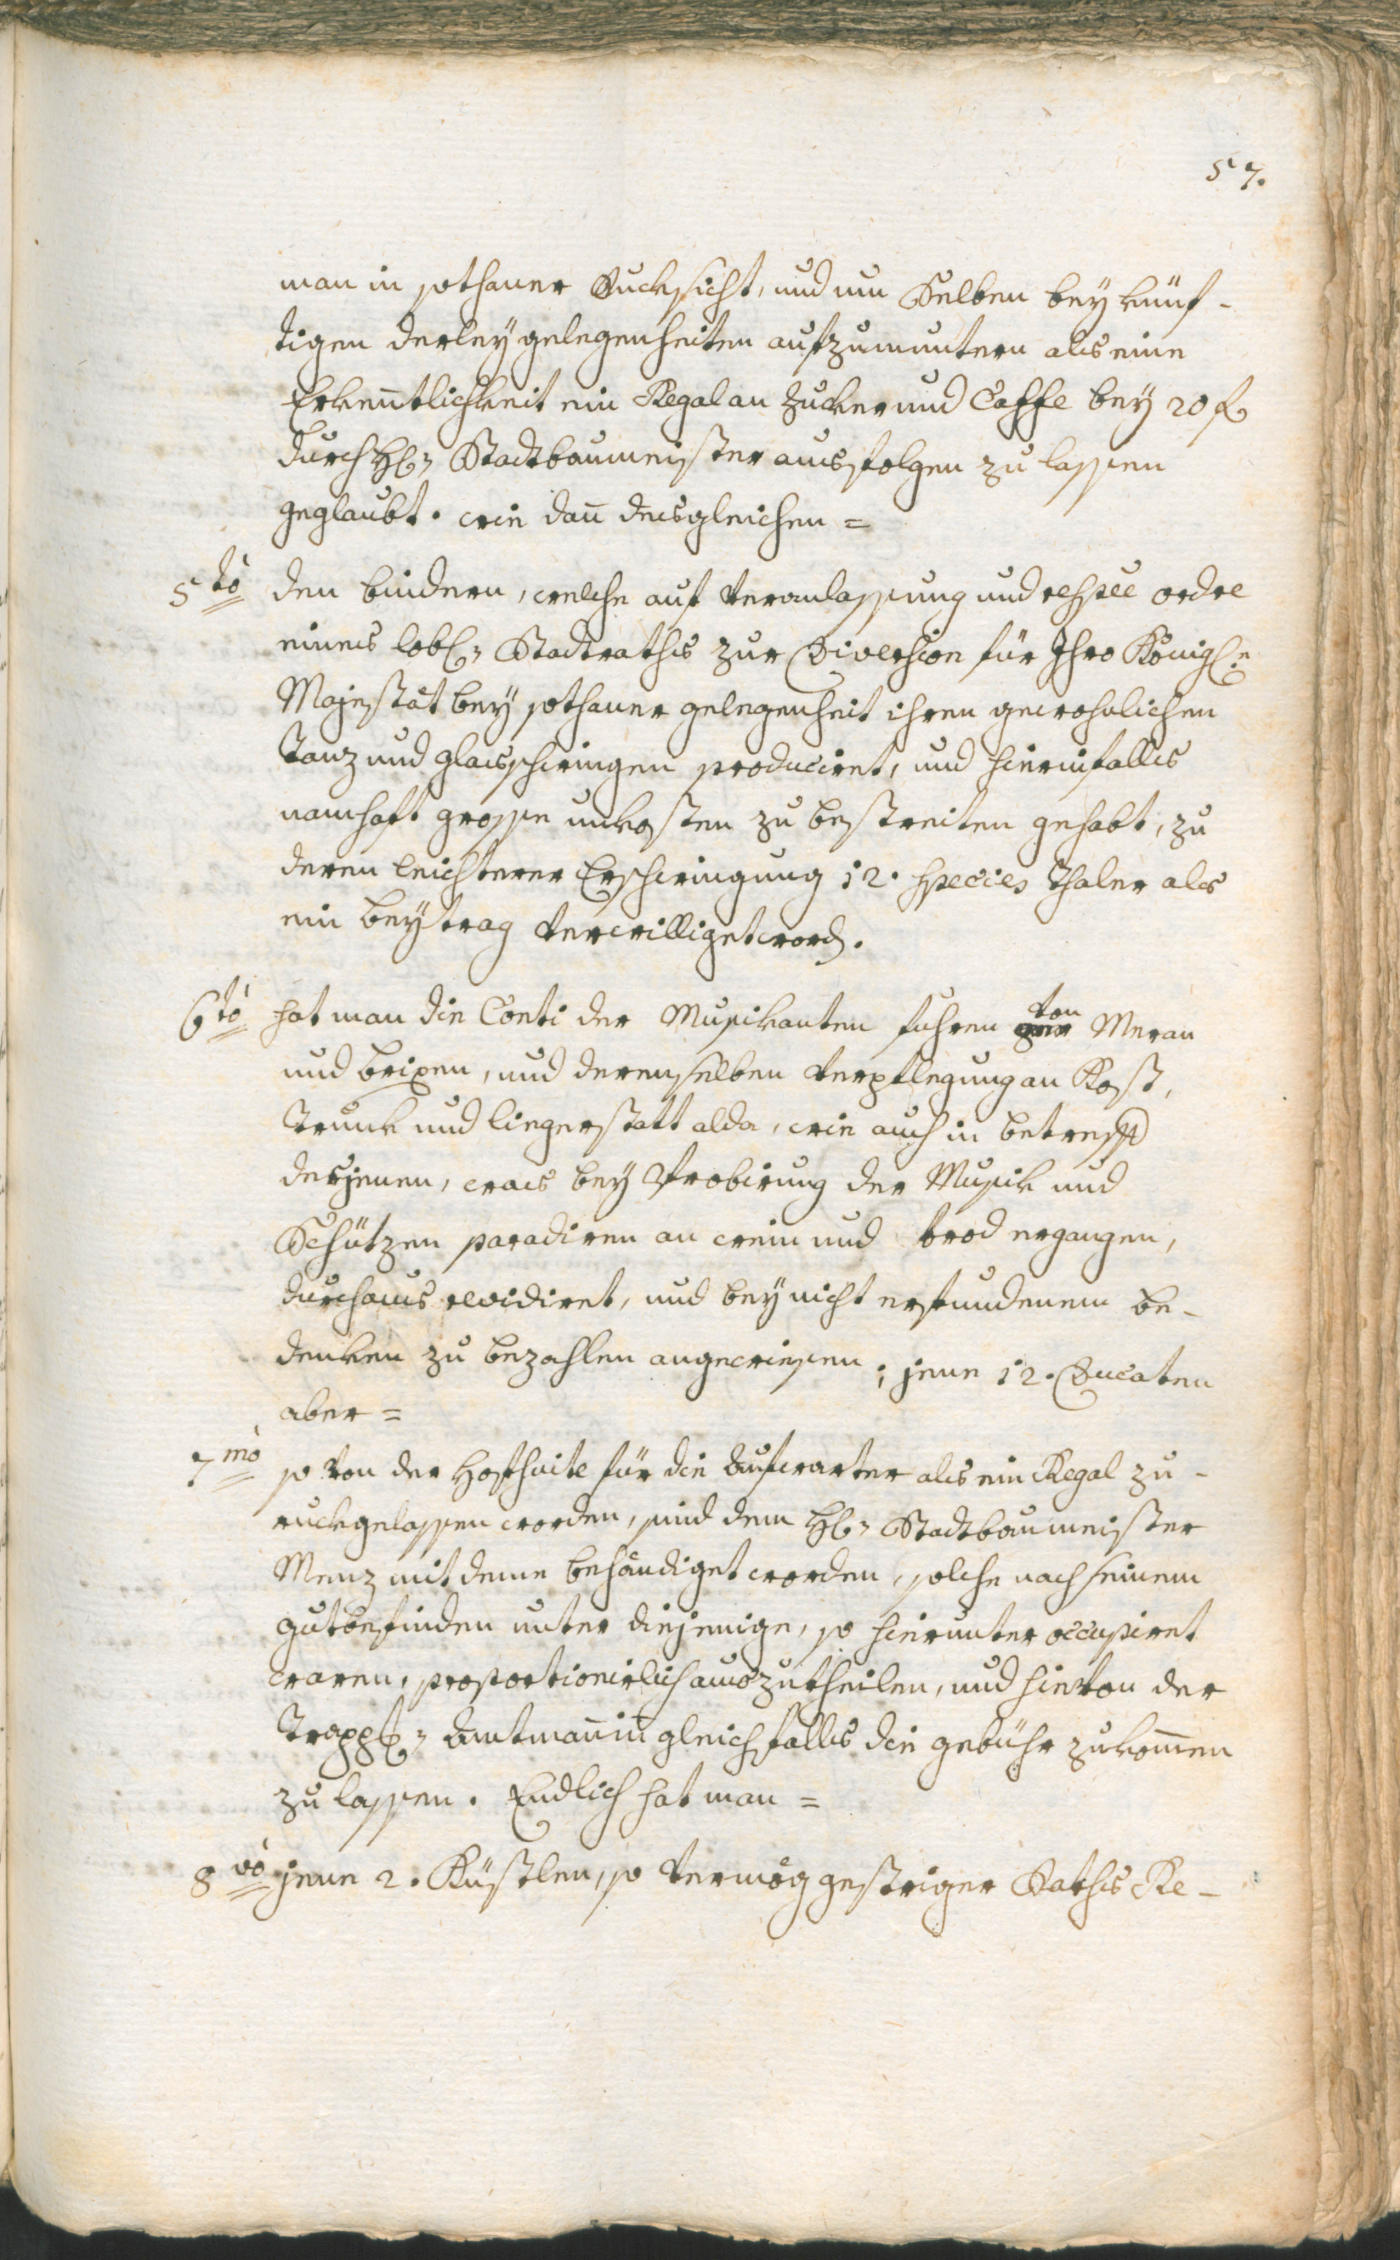 57.
man in sothaner Rucksicht, und um Selben bey künf-
tigen derley gelegenheiten aufzumuntern als eine
Erkentlichkeit ein Regal an Zucker und Caffe bey 20 f
durch H: Stadtbaumeister ausfolgen zu lassen
geglaubt. wie dan desgleichen =
5to den bindern, welche auf veranlassung und respve ordre
eines lobl: Stadtraths zur Diversion für Ihro Königl:n
Majestät bey sothaner gelegenheit ihren gewohnlichen
Tanz und glasschwingen produciret, und hierinfalls
namhaft grosse unkosten zu bestreiten gehabt, zu
deren leichterer Erschwingung 12. species thaler als
ein beytrag verwilliget word.
6to hat man die Conti der Musikanten fuhren von Meran
und brixen, und derenselben verpflegung an Kost,
Trunk und liegerstatt alda, wie auch in betreff
desjenen, was bey Probirung der Musik und
Schützen paradiren an wein und brod ergangen,
durchaus revidiret, und bey nicht erfundenem be-
denken zu bezahlen angewiesen; jene 12. Ducaten
aber =
7mo so von der Hofsuite für die Aufwarter als ein Regal zu-
ruckgelassen worden, sind dem H: Stadtbaumeister
Menz mit deme behändiget worden, solche nach seinem
gutbefinden unter diejenige, so hierunter occupiret
waren, proportionirlich auszutheilen, und hievon der
Trappl: Amtmanin gleichfalls die gebühr zukommen
zu lassen. Endlich hat man =
8vo jene 2. Küstlen, so vermög gestriger Raths Re-